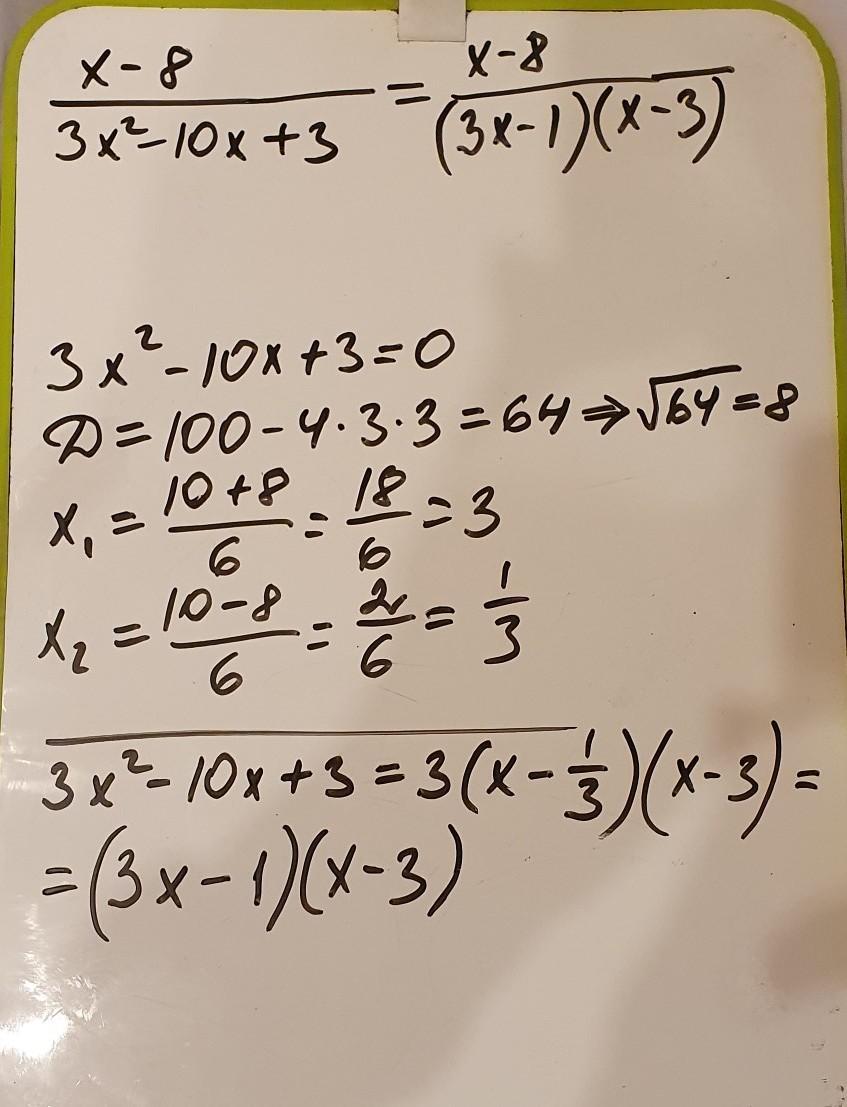 x-8/3x²-10x+3 = x-8/(3x-1)(x-3)
3x²-10x+3=0
D=100-4·3·3=64⇒√64=8
x₁=10+8/6=18/6=3
x₂=10-8/6=2/6=1/3
3x²-10x+3=3(x-1/3)(x-3)=
=(3x-1)(x-3)